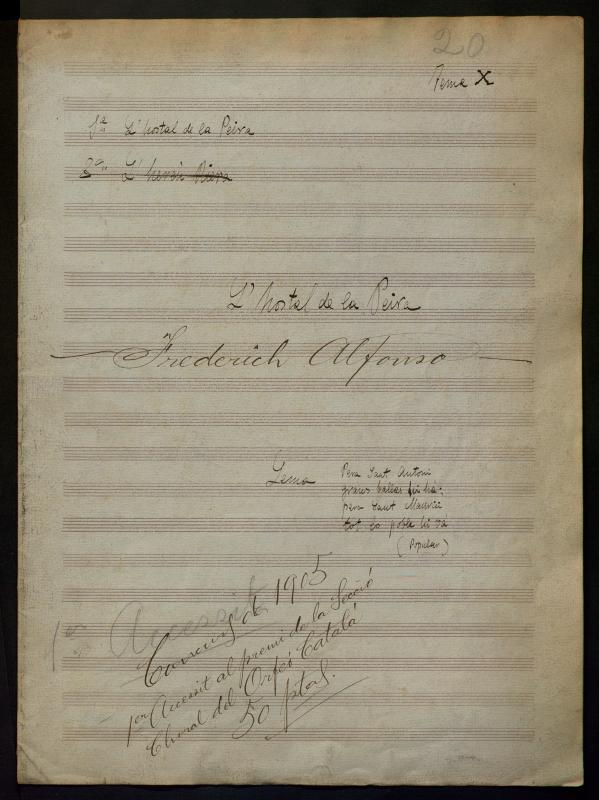 20
Tema X
1ª L'hostal de la Peira
2ª L'hereu Riera
L'hostal de la Peira
Frederich Alfonso
Lema Pera Sant Antoni
grans balles hi ha;
pera Sant Maurici
tot lo poble hi vá
(Popular)
1er Accessit
Concurs de 1905
1er Accesit al premi de la Secció
Choral del Orfeó Català
50 ptas.